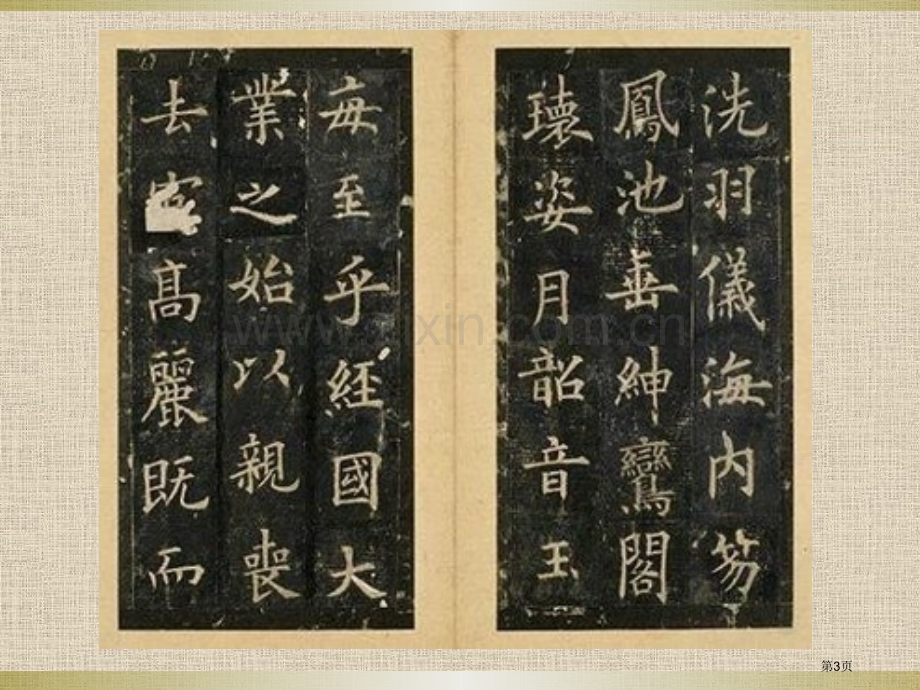 洗羽儀海內笏
鳳池垂紳鸞閣
瓌姿月韶音玉
毎至乎經國大
業之始以親喪
去髙麗既而
第3页